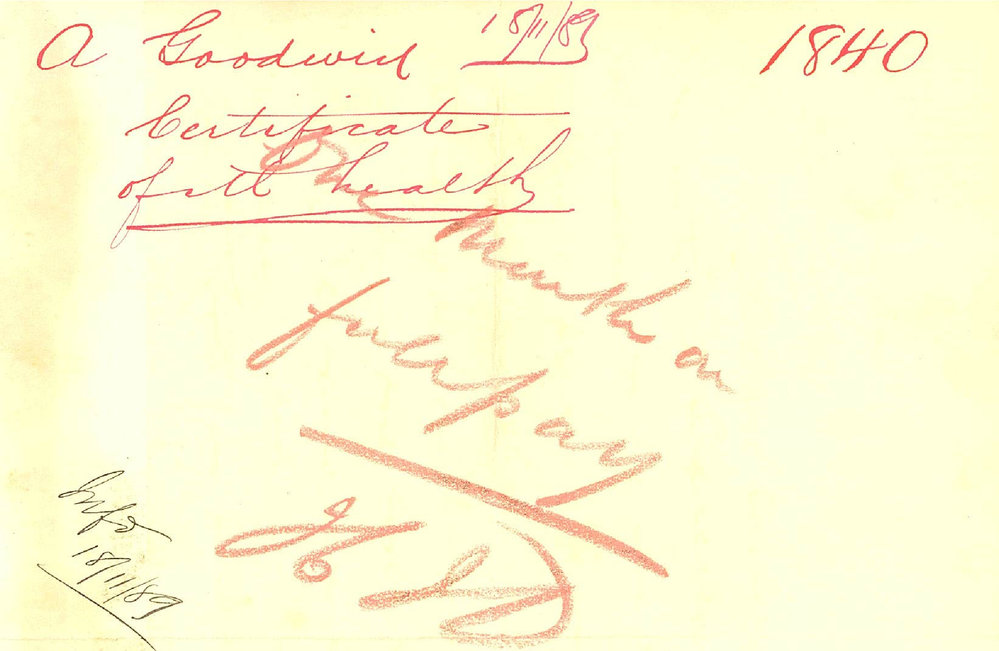 A Goodwin 18/11/89 1840
Certificate
of ill health
One Month on
full pay
Info
18/11/89